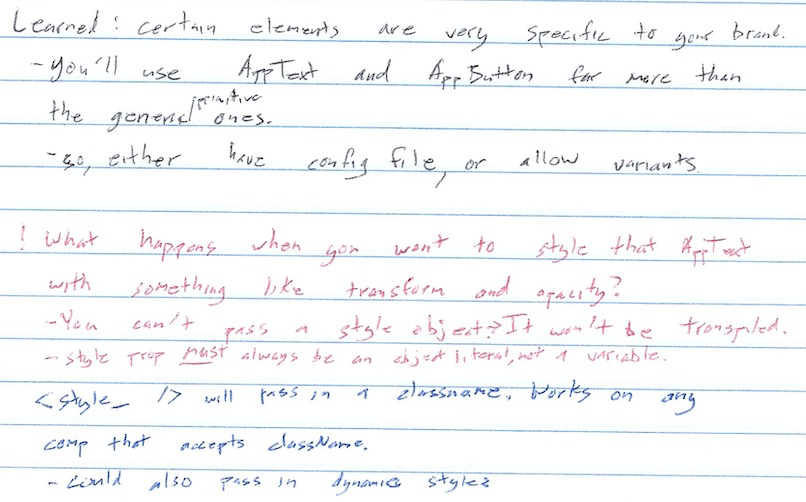 Learned: certain elements are very specific to your brand.
- You'll use AppText and AppButton far more than
the general/primitive ones.
- so, either have config file, or allow variants.
! What happens when you want to style that AppText
with something like transform and opacity?
- You can't pass a style object? It won't be transpiled.
- style prop must always be an object literal, not a variable.
<style_ /> will pass in a classname. Works on any
comp that accepts className.
- Could also pass in dynamic styles